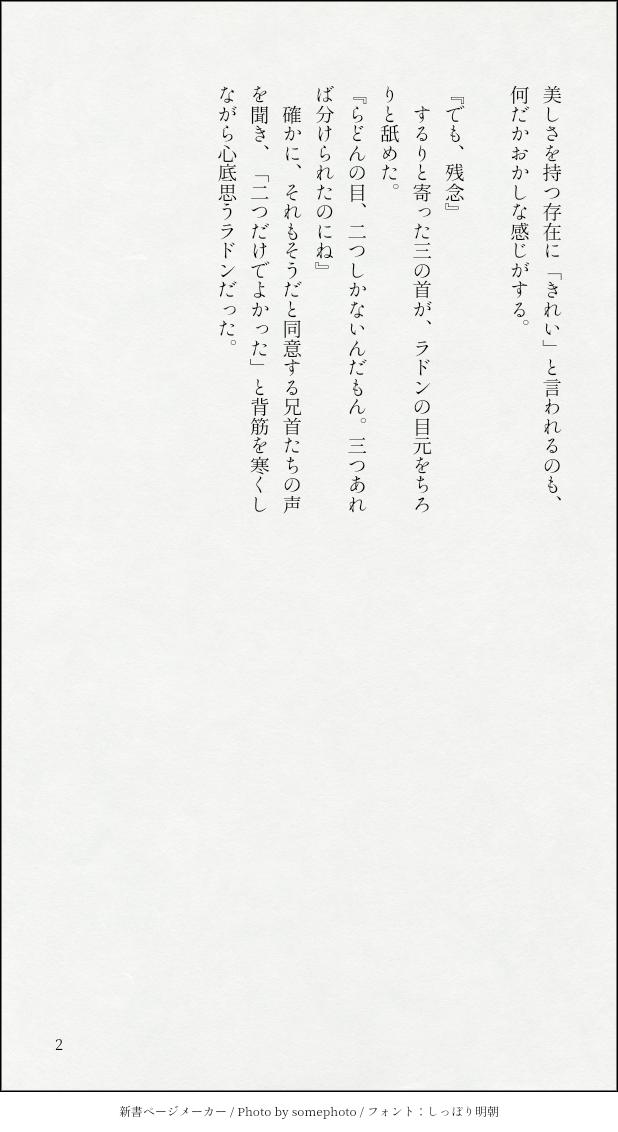 美しさを持つ存在に「きれい」と言われるのも、
何だかおかしな感じがする。
『でも、残念』
　するりと寄った三の首が、ラドンの目元をちろ
りと舐めた。
『らどんの目、二つしかないんだもん。三つあれ
ば分けられたのにね』
　確かに、それもそうだと同意する兄首たちの声
を聞き、「二つだけでよかった」と背筋を寒くし
ながら心底思うラドンだった。
2
新書ページメーカー / Photo by somephoto / フォント：しっぽり明朝